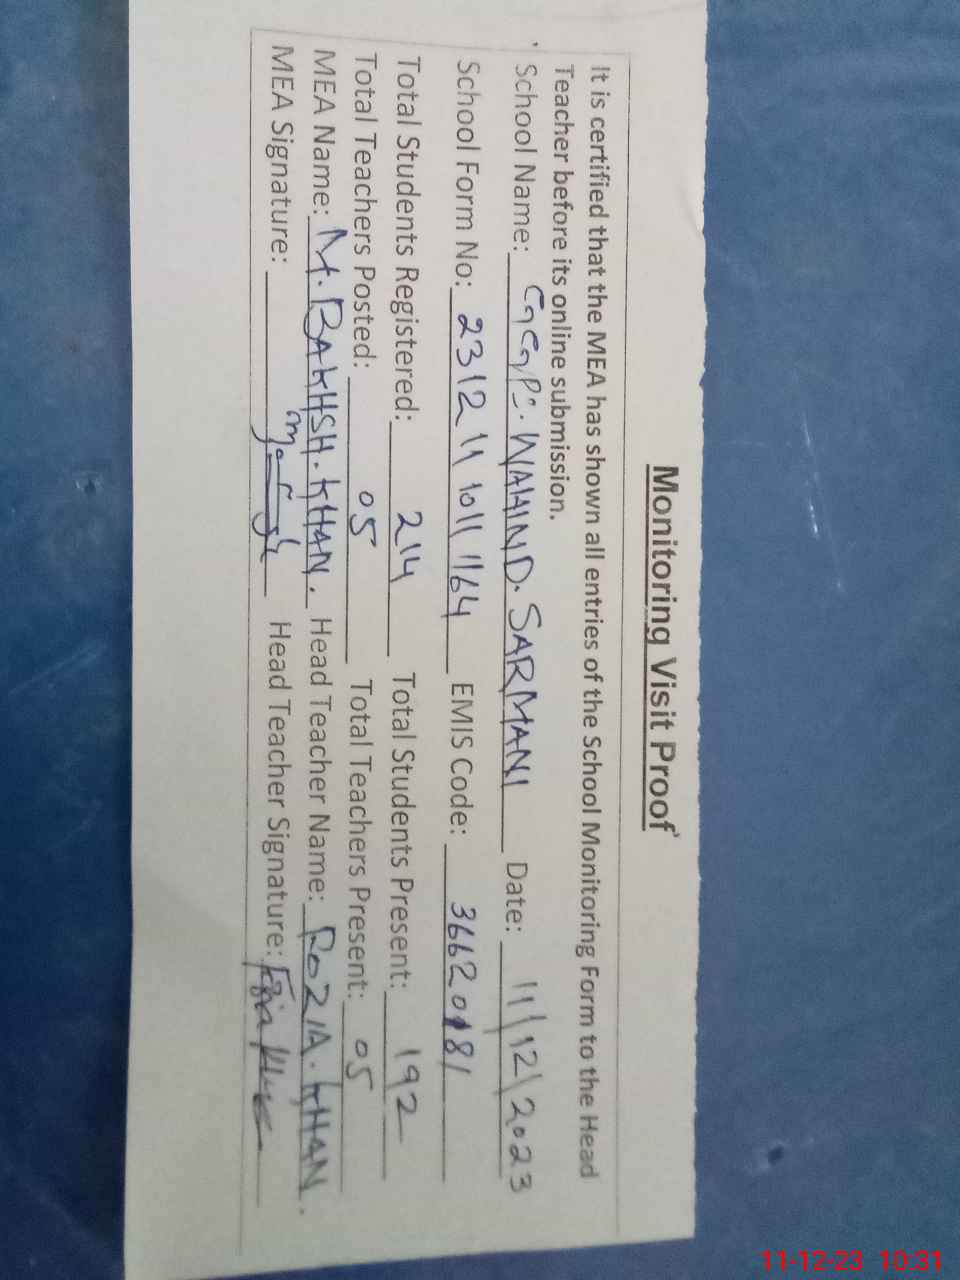 Monitoring Visit Proof
It is certified that the MEA has shown all entries of the School Monitoring Form to the Head
Teacher before its online submission.
School Name: GGPS. WAHIND. SARMANI Date: 11/12/2023
School Form No: 2312 11 1011 1164 EMIS Code: 36620181
Total Students Registered: 214 Total Students Present: 192
Total Teachers Posted: 05 Total Teachers Present: 05
MEA Name: M. BAKHSH. KHAN. Head Teacher Name: ROZIA. KHAN.
MEA Signature: Head Teacher Signature:
11-12-23 10:31